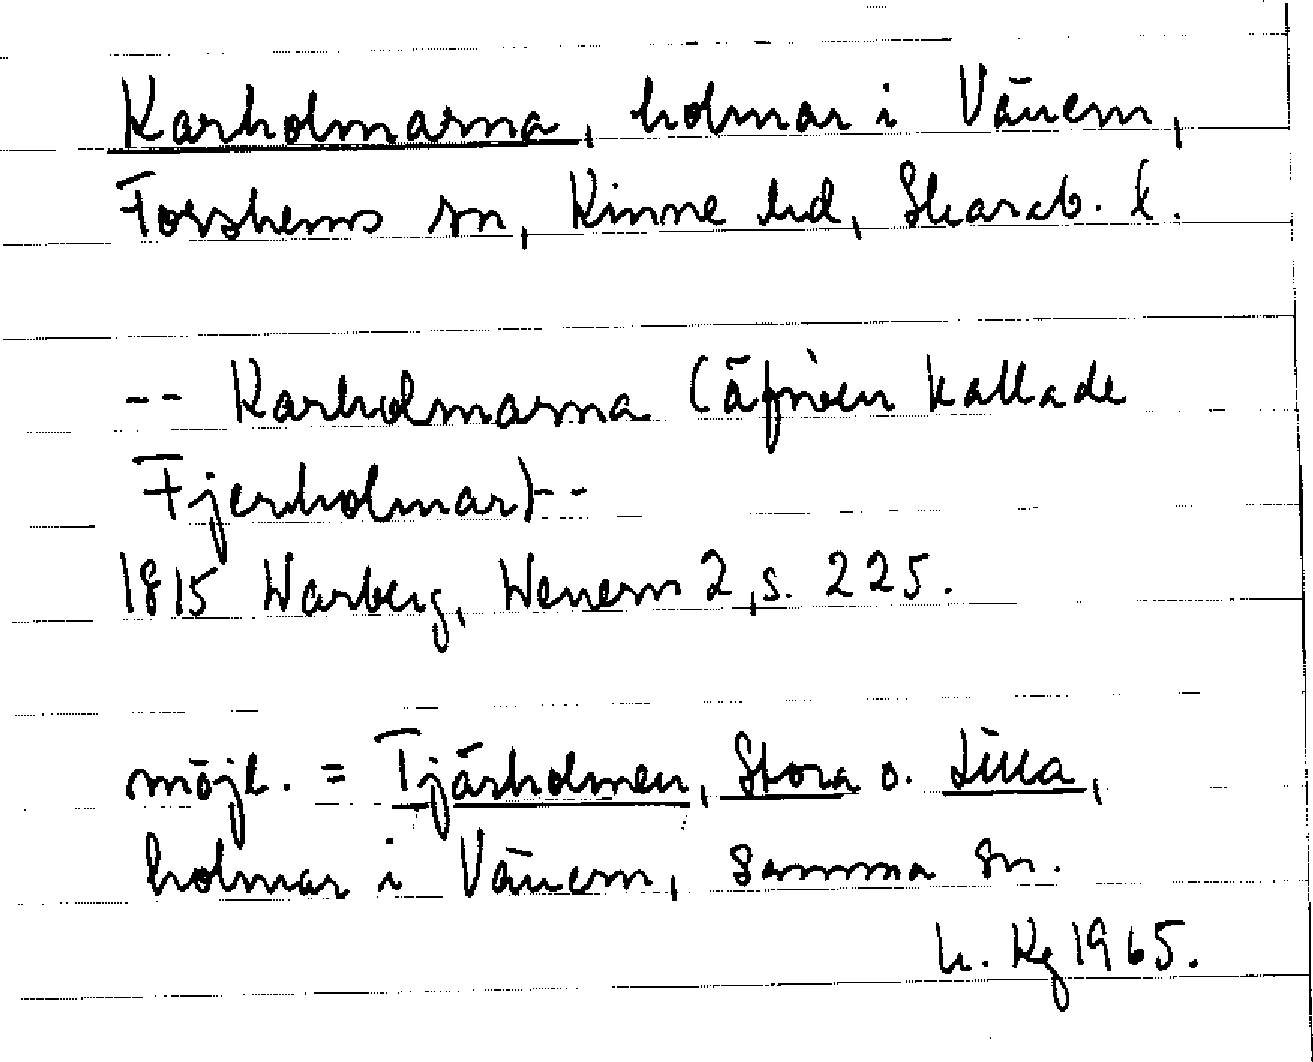 Karholmarna, holmar i Vänern,
Forshems sn, Kinne hd, Skarab. l.
-- Karholmarna (äfven kallade
Fjerholmar) --
1815 Warberg, Wenern 2, s. 225.
möjl. = Tjärholmen, Stora o. Lilla,
holmar i Vänern, samma sn.
Kg 1965.